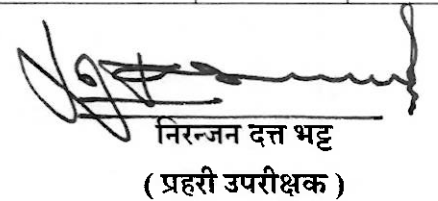 निरन्जन दत्त भट्ट
( प्रहरी उपरीक्षक )